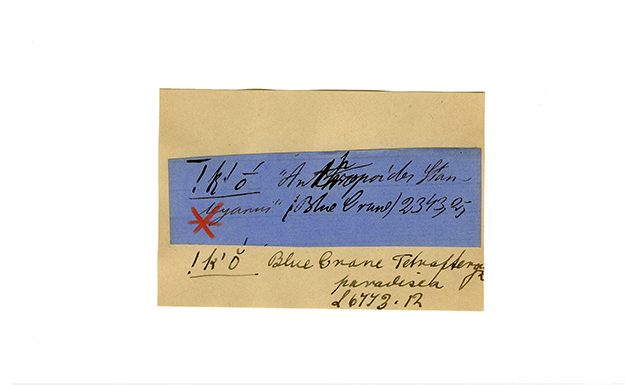 !k!ó "Anthropoides Stan-
leyanus" (Blue Crane) 2343,
!k'ŏ Blue Crane Tetrapteryx
paradisea
L 6773.12